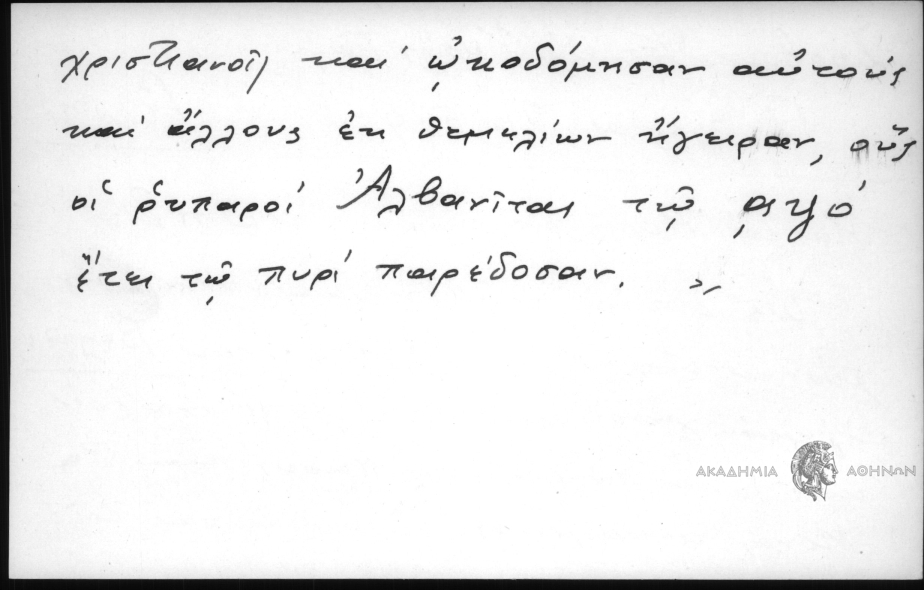 χριστιανοῖς καί ᾠκοδόμησαν αὐτούς
καί ἄλλους ἐκ θεμελίων ἤγειραν, οὕς
οἱ ῥυπαροί Ἀλβανῖται τῷ
ἔτει τῷ πυρί παρέδοσαν. »
ΑΚΑΔΗΜΙΑ ΑΘΗΝΩΝ